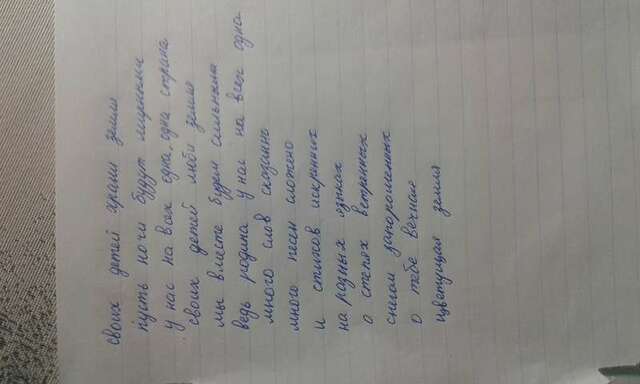 своих детей храни земля
пусть ночи будут мирными
у нас на всех одна, одна страна
своих детей люби земля
мы вместе будем сильными
ведь родина у нас на всех одна
много слов сказанно
много песен сложено
и стихов искренних
на разных языках
о степях ветренных
снегом запорошенных
о тебе вечная
цветущая земля